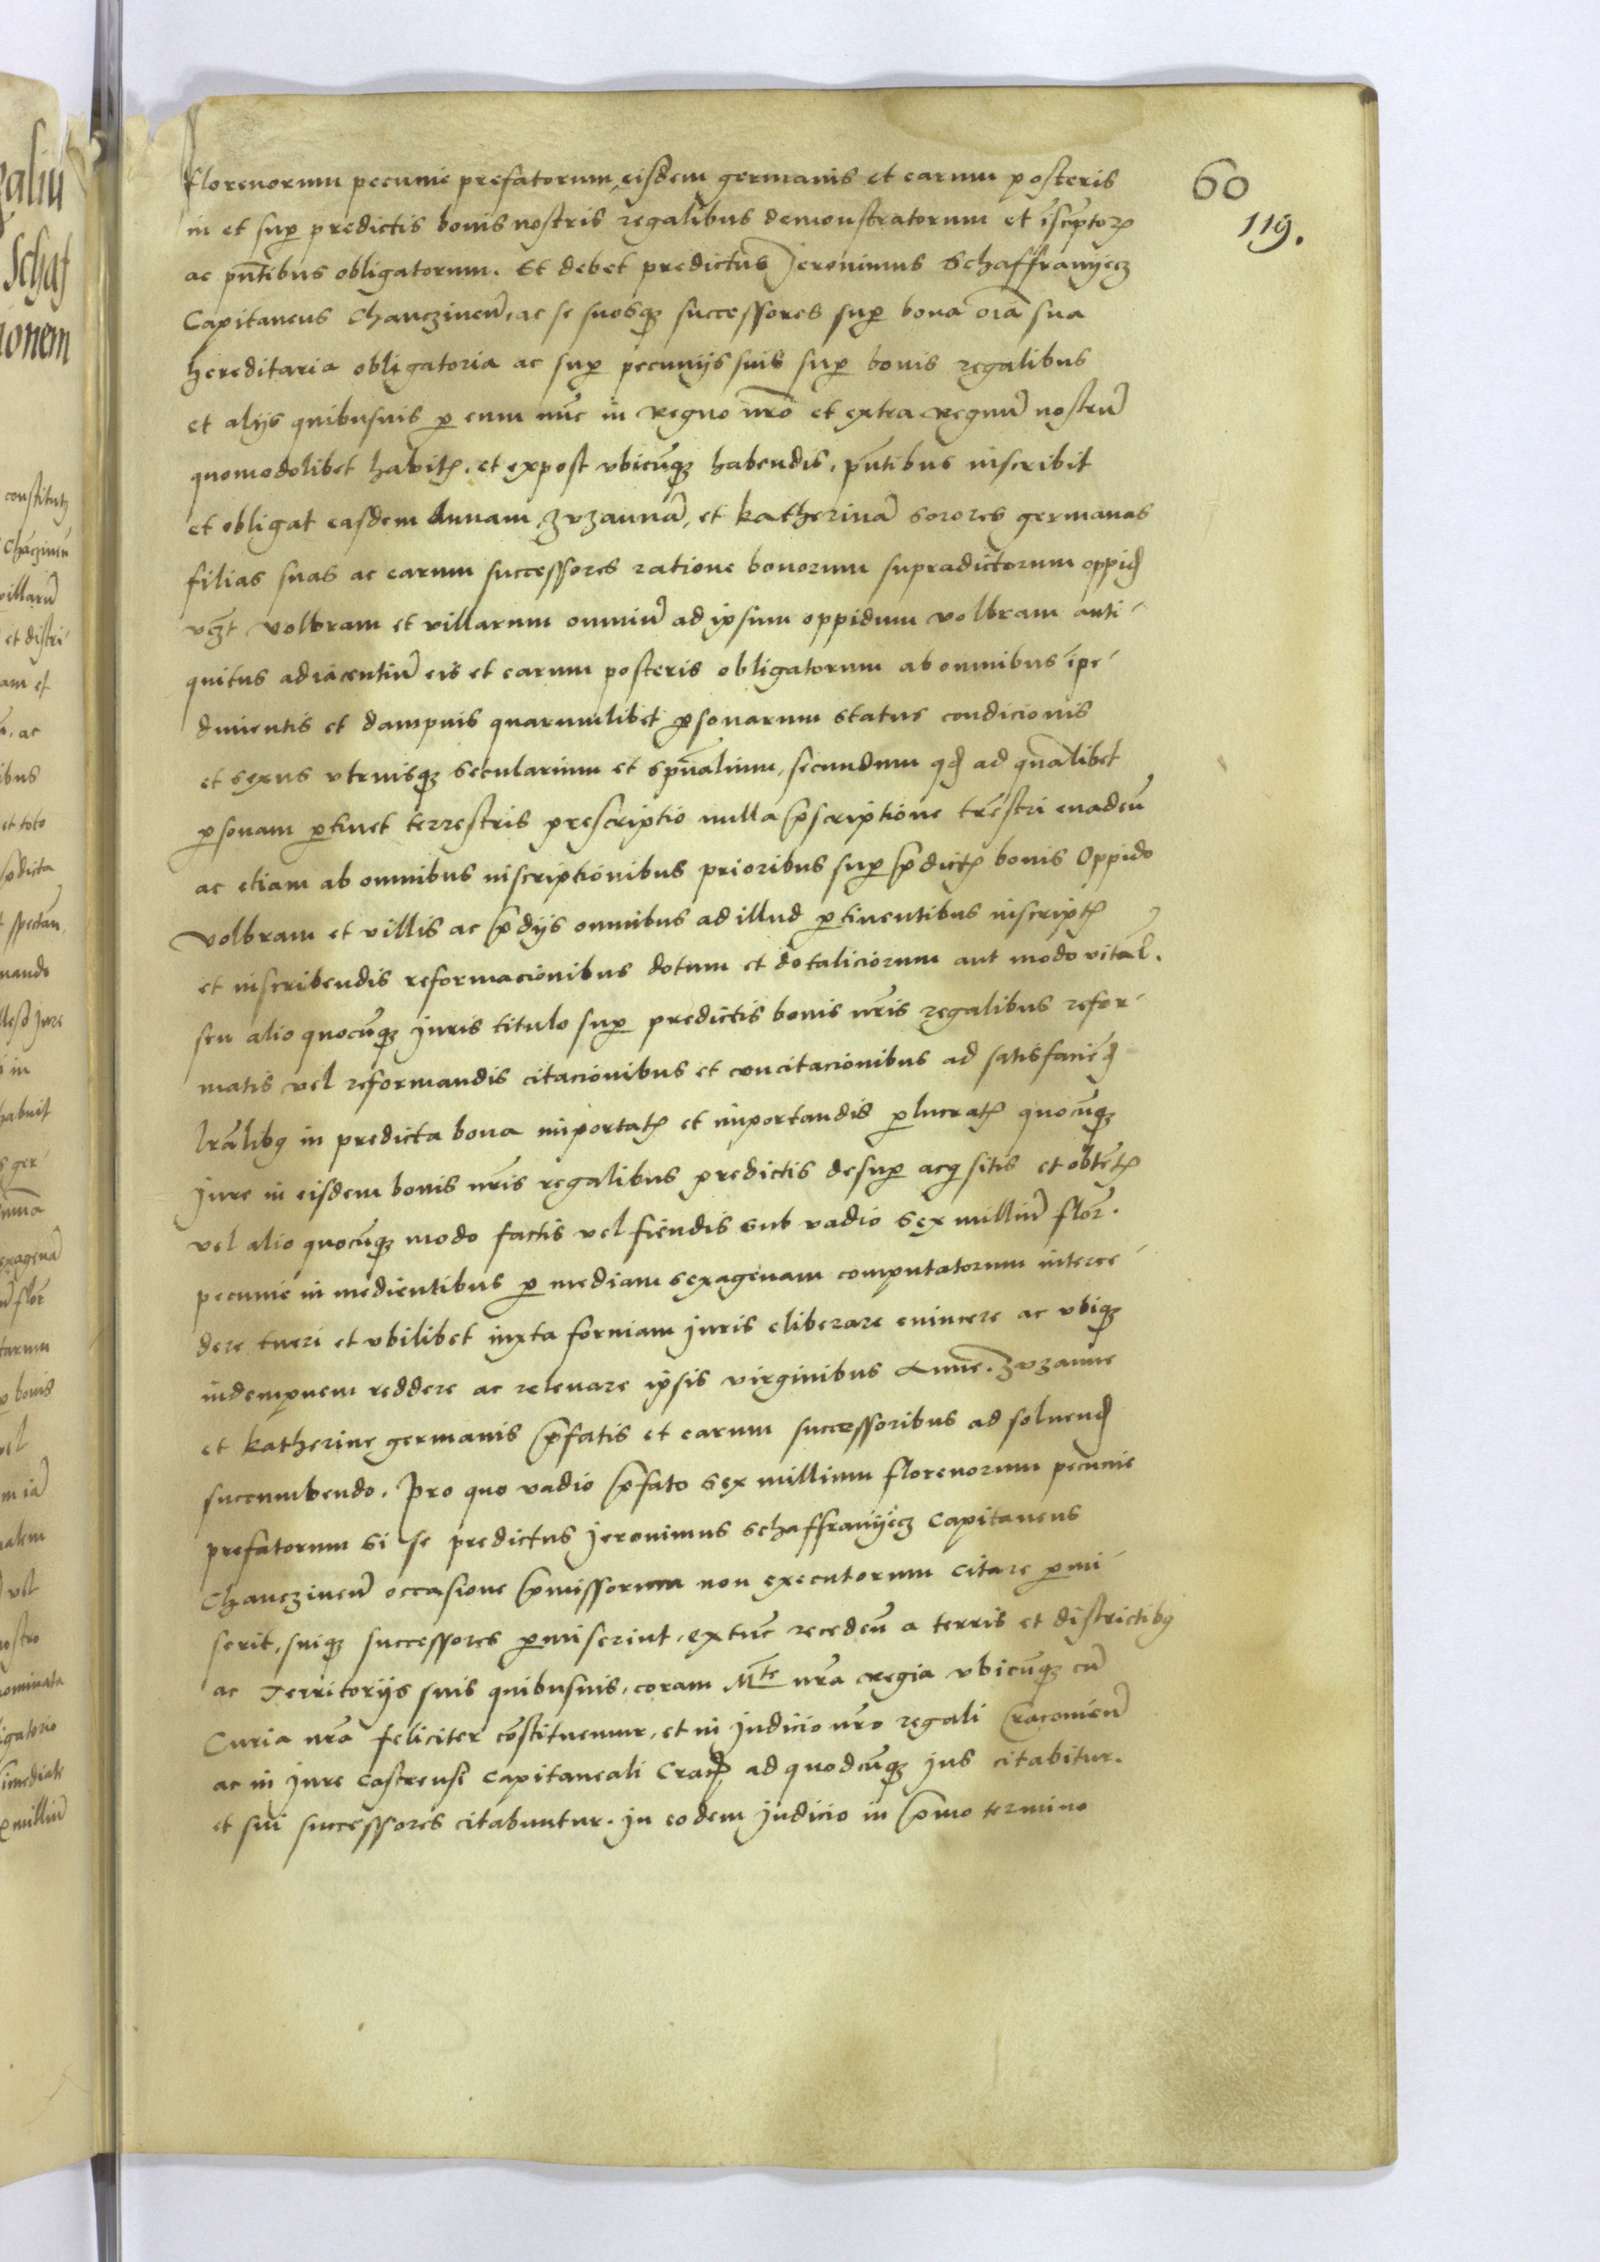 florenorum pecunie prefatorum eisdem germanis et earum posteris
in et sup predictis bonis nostris regalibus demonstratorum et īscptoꝝ
ac pn̄tibus obligatorum. Et debet predictus Jeronimus Schaffranyecz
Capitaneus Chanczinen̄, ac se suosqꝫ successores sup bona oīa sua
hereditaria obligatoria ac sup pecunijs suis sup bonis regalibus
et alijs quibusuis ꝑ eum nūc in regno nr̄o et extra regnū nostrū
quomodolibet habitꝭ. et expost vbicūqꝫ habendis, pn̄tibus inscribit
et obligat easdem Annam, zuzannā, et katherinā sorores germanas
filias suas ac earum successores ratione bonorum supradictorum oppid
vcꝫt volbram et villarum omniū ad ipsum oppidum volbram anti-
quitus adiacentiū eis et earum posteris obligatorum ab omnibus īpe-
dimentis et dampnis quarumlibet ꝑsonarum status condicionis
et sexus vtriusqꝫ secularium et spūalium, secundum qd ad quālibet
ꝑsonam ꝑtinet terrestris prescriptio nulla p̄scriptione trēstri euadeñ
ac etiam ab omnibus inscriptionibus prioribus sup p̄dictꝭ bonis Oppido
volbram et villis ac p̄dijs omnibus ad illud ꝑtinentibus inscriptꝭ
et inscribendis reformacionibus dotum et dotaliciorum aut modo vital.
seu alio quocūqꝫ juris titulo sup predictis bonis nr̄is regalibus refor-
matis vel reformandis citacionibus et concitacionibus ad satisfaciēd
lrālibꝯ in predicta bona importatꝭ et importandis ꝑlucratꝭ quocūqꝫ
jure in eisdem bonis nr̄is regalibus predictis desup acqsitis et obtētꝭ
vel alio quocūqꝫ modo factis vel fiendis sub vadio sex milliū flor̄.
pecunie in medientibus ꝑ mediam sexagenam computatorum interce-
dere tueri et vbilibet iuxta formam juris eliberare euincere ac vbiqꝫ
indempnem reddere ac releuare ipsis virginibus Anne. zuzanne
et katherine germanis p̄fatis et earum successoribus ad soluend
succumbendo. Pro quo vadio p̄fato sex millium florenorum pecunie
prefatorum si se predictus Jeronimus Schaffranyecz Capitaneus
Chanczinen̄ occasione p̄missorum non executorum citare ꝑmi-
serit, suiqꝫ successores ꝑmiserint, extūc recedeñ a terris et districtibꝯ
ac Territorijs suis quibusuis, coram Mte nr̄a regia vbicūqꝫ cū
Curia nr̄a feliciter cōstituemur, et in judicio nr̄o regali Cracouien̄
ac in jure castrensi capitaneali Crac̄ ad quodcūqꝫ jus citabitur.
et sui successores citabuntur. jn eodem judicio in p̄mo termino
60
119.